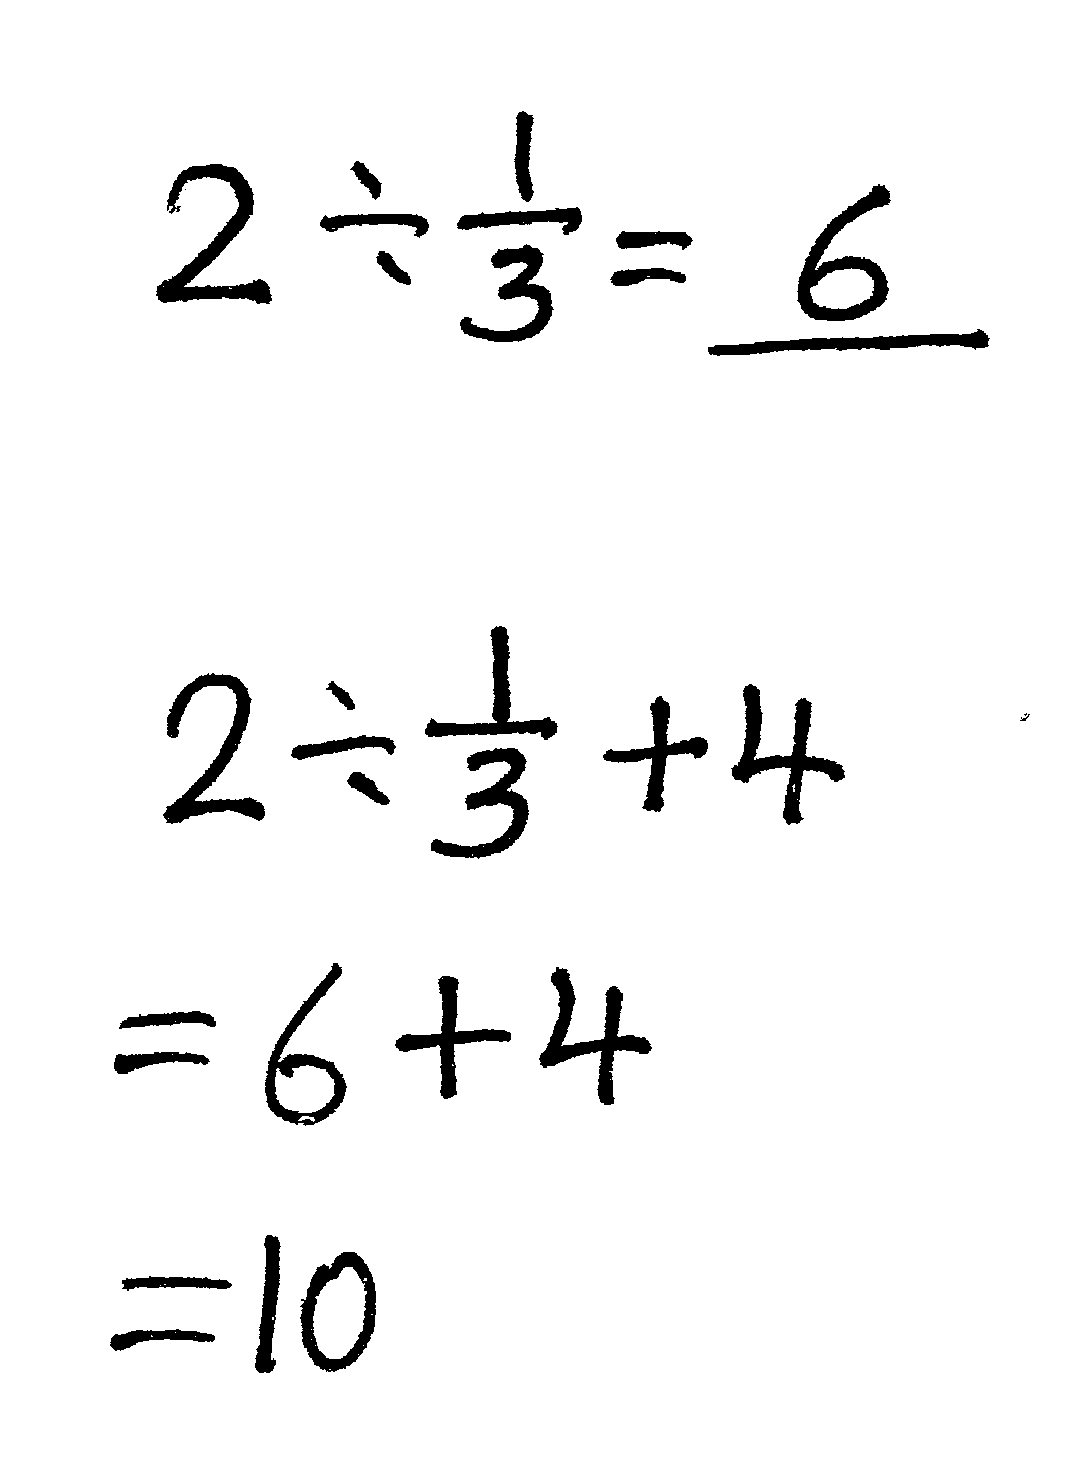 2 ÷ 1/3 = 6
2 ÷ 1/3 + 4
= 6 + 4
= 10